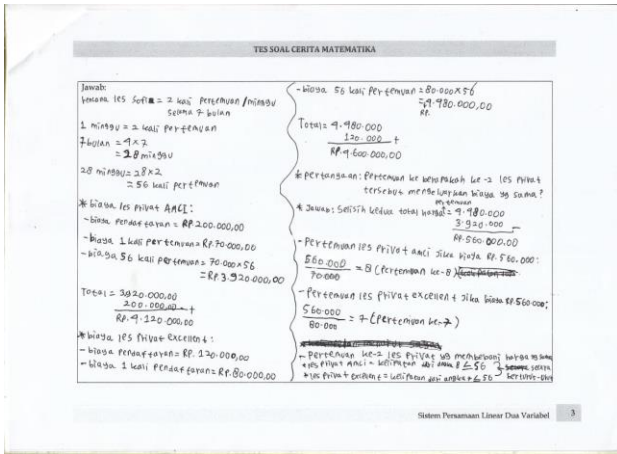 TES SOAL CERITA MATEMATIKA
Jawab:
rencana les Sofia = 2 kali pertemuan/minggu
selama 7 bulan
1 minggu = 2 kali pertemuan
7 bulan = 4 x 7
= 28 minggu
28 minggu = 28 x 2
= 56 kali pertemuan
* biaya les privat AMCI:
- biaya pendaftaran = RP.200.000,00
- biaya 1 kali pertemuan = RP.70.000,00
- biaya 56 kali pertemuan = 70.000 x 56
= RP.3.920.000,00
Total = 3.920.000,00
200.000,00 +
RP.4.120.000,00
* biaya les privat excellent:
- biaya pendaftaran = RP. 120.000,00
- biaya 1 kali pendaftaran = RP.80.000,00
- biaya 56 kali pertemuan = 80.000 x 56
= 4.480.000,00
RP.
Total = 4.480.000
120.000 +
RP.4.600.000,00
* pertanyaan: Pertemuan ke berapakah ke-2 les privat
tersebut mengeluarkan biaya yg sama?
pertemuan
* Jawab: Selisih kedua total harga = 4.480.000
3.920.000 -
RP.560.000.00
- Pertemuan les privat amci jika biaya RP.560.000:
560.000
70.000 = 8 (Pertemuan ke-8)
- Pertemuan les privat excellent jika biaya RP.560.000:
560.000
80.000 = 7 (Pertemuan ke-7)
- Pertemuan ke-2 les privat yg membebani harga yg sama
* les privat AMCI = kelipatan dari angka 8 ≤ 56
secara
* les privat excellent = kelipatan dari angka 7 ≤ 56
berturut-turut
Sistem Persamaan Linear Dua Variabel 3